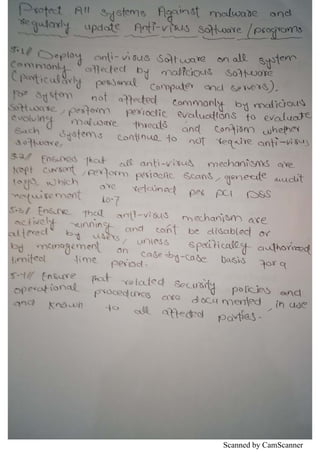 Protect All systems Against malware and
regularly update Anti-virus software / programs
5.1// Deploy anti-virus software on all system
commonly affected by malicious software
(particularly personal computer and servers).
For system not affected commonly by malicious
software, perform periodic evaluations to evaluate
evolving malware threads and confirm whether
such systems continue to not require anti-virus
software.
5.2// Ensures that all anti-virus mechanisms are
kept current, perform periodic scans, generate audit
logs which are retained per PCI DSS
requirement 10.7
5.3// Ensure that anti-virus mechanism are
actively running and can't be disabled or
altered by users, unless specifically authorized
by management on case-by-case basis for a
limited time period.
5.4// Ensure that related security policies and
operational procedures are documented, in use
and known to all affected parties.
Scanned by CamScanner